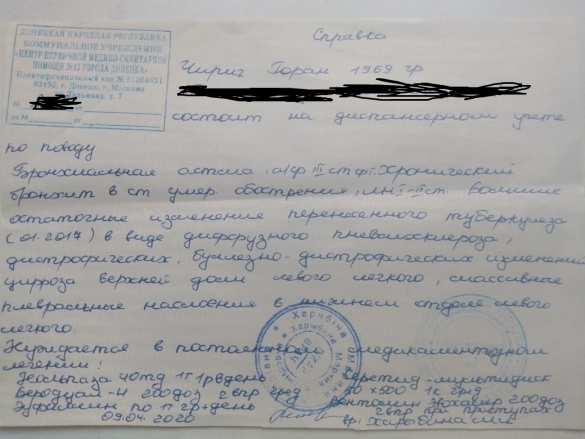 ДОНЕЦКАЯ НАРОДНАЯ РЕСПУБЛИКА
КОММУНАЛЬНОЕ УЧРЕЖДЕНИЕ
«ЦЕНТР ПЕРВИЧНОЙ МЕДИКО-САНИТАРНОЙ
ПОМОЩИ №13 ГОРОДА ДОНЕЦКА»
Идентификационный код №
г. Донецк,
Справка
Чирич Горан 1969 гр
состоит на диспансерном учете
по поводу
Бронхиальная астма, III ст Хронический
бронхит в ст умер. обострения, ЛН I-II ст. Большие
остаточные изменения перенесенного туберкулеза
(01.2017) в виде диффузного пневмосклероза,
дистрофических, буллезно-дистрофических изменений
цирроза верхней доли левого легкого, массивные
плевральные наслоения в нижнем отделе левого
легкого.
Нуждается в постоянном медикаментозном
лечении:
Нольпаза 40 1т 1р в день
Беродуал-Н 200доз 2 впр Серетид-мультидиск
50 x 500
Эуфиллин по 1т в день Вентолин Эвохалер 200доз
2 впр при приступах
09.04.2020